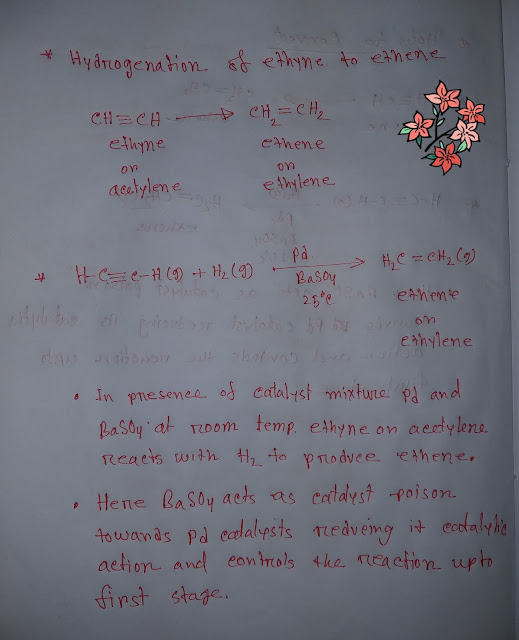 * Hydrogenation of ethyne to ethene
CH≡CH → CH2=CH2
ethyne ethene
or or
acetylene ethylene
* H-C≡C-H(g) + H2(g) Pd BaSO4 25°C → H2C=CH2(g)
ethene
or
ethylene
• In presence of catalyst mixture Pd and
BaSO4 at room temp. ethyne or acetylene
reacts with H2 to produce ethene.
• Here BaSO4 acts as catalyst poison
towards Pd catalysts reducing it catalytic
action and controls the reaction upto
first stage.